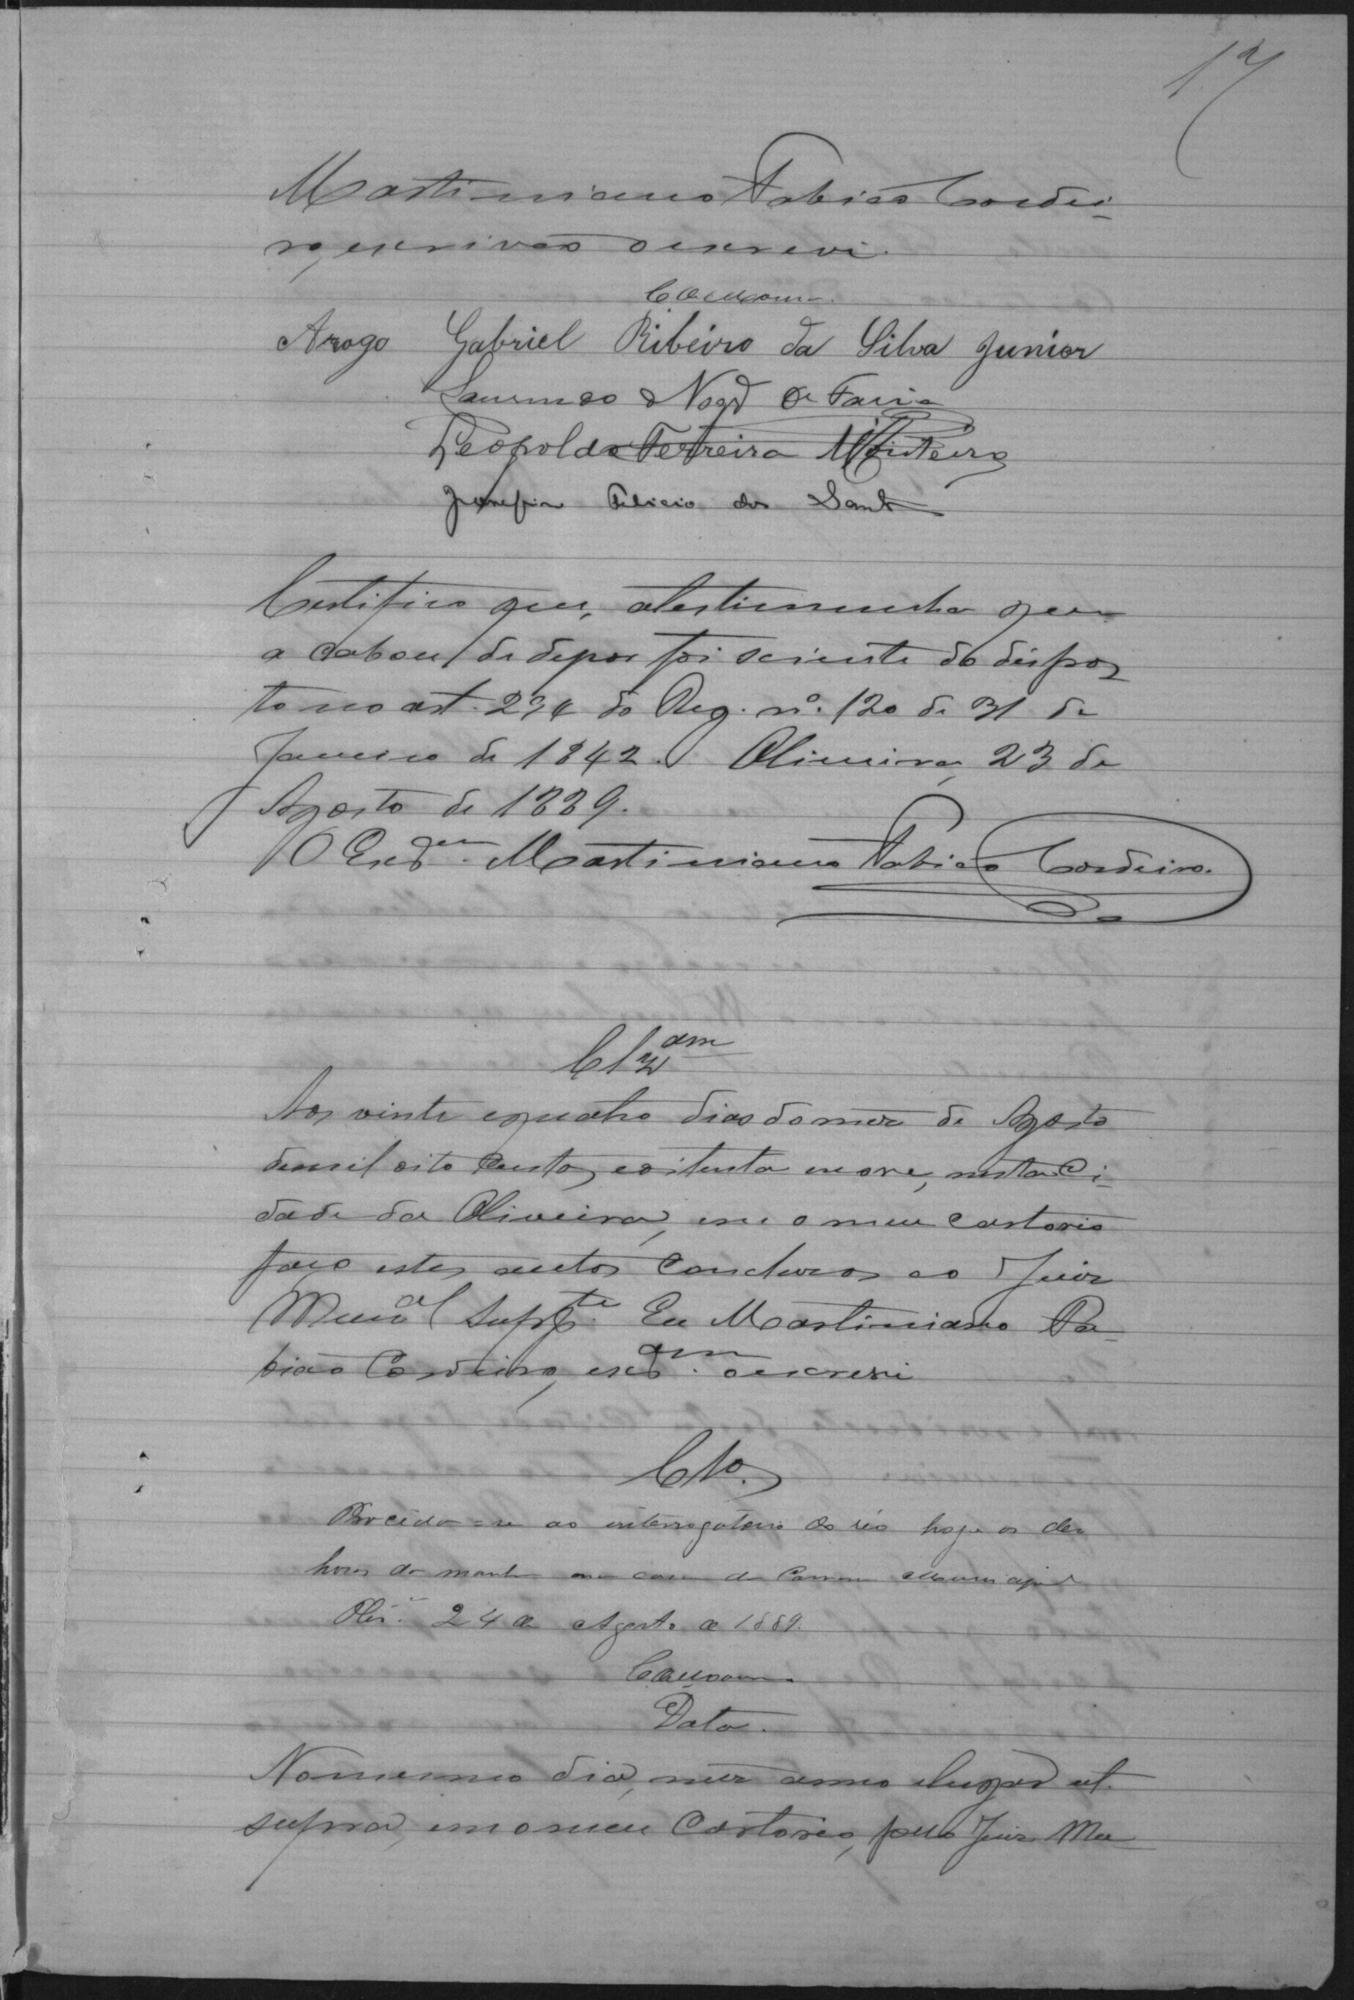 17
Martiniano Fabião Cordei-
ro, escrivão o escrevi.
Arogo Gabriel Ribeiro da Silva Junior
Lourenço de Faria
Leopoldo Ferreira Monteiro
Felicio dos Santos
Certifico que, atestimunha que
acabou de depor foi sciente do dispos
to no art. 294 do Reg. nº. 120 de 31 de
Janeiro de 1842. Oliveira, 23 de
Agosto de 1889.
O Escr.am Martiniano Fabião Cordeiro.
Clzam
Aos vinte e quatro dias do mez de Agosto
de mil oito centos e oitenta e nove, nesta Ci-
dade da Oliveira, em o meu cartorio
faço estes autos conclusos ao Juiz
Munal Suppte. Eu Martiniano Fa-
bião Cordeiro, escram. o escrevi
Clo.
Proceda-se ao interrogatorio do réo hoje as dez
horas da manhã na casa da Camara Municipal
Olivª. 24 de Agosto de 1889.
Data.
No mesmo dia, mez anno e lugar ut
supra, em o meu Cartorio, pelo Juiz Mu